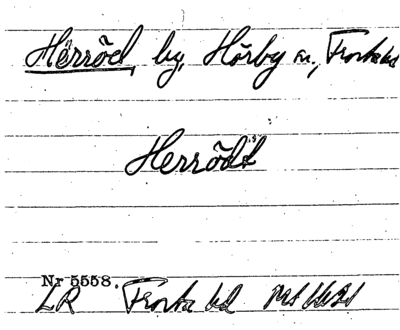 Härröd, by, Hörby sn., Frosta hd
Herrödt
Nr 5558.
LR Frosta hd